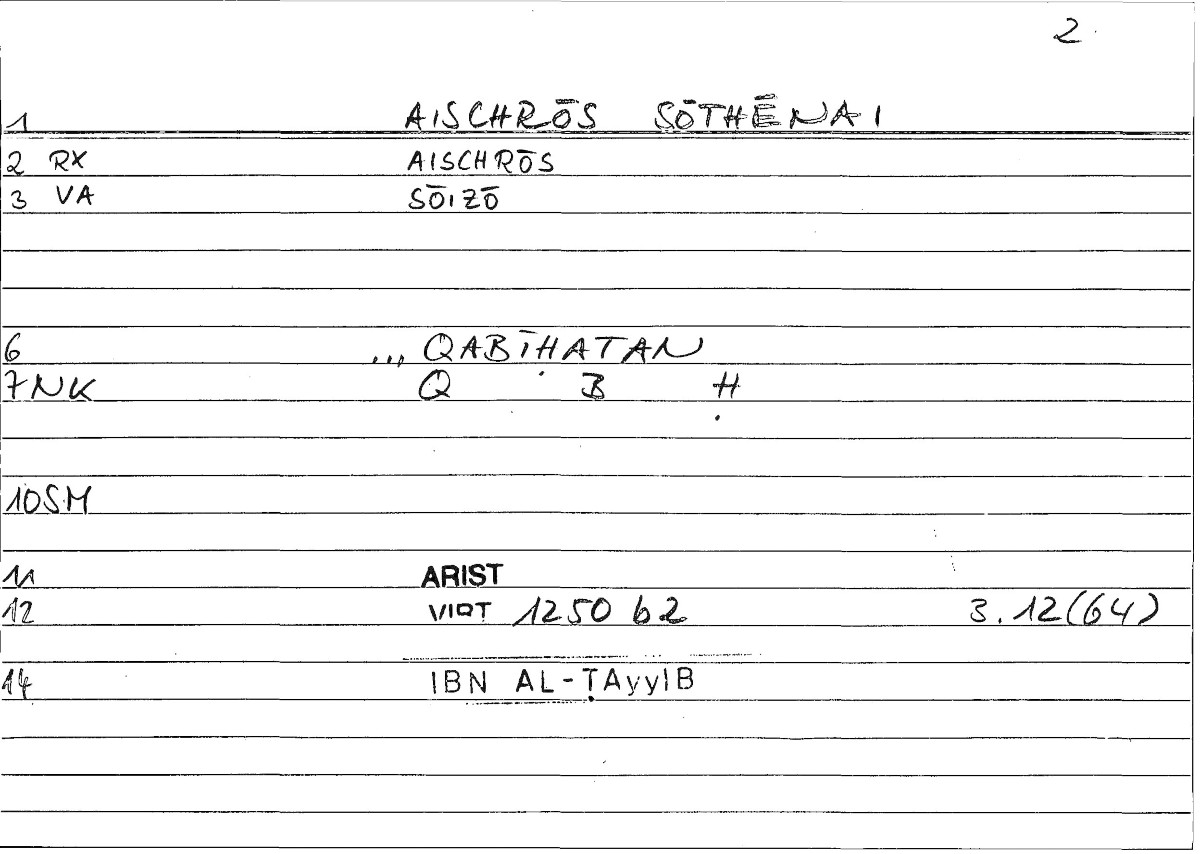 2
1 AISCHRŌS SŌTHĒNAI
2 RX AISCHRŌS
3 VA SŌIZŌ
6 ... QABĪḤATAN
7 NK Q B Ḥ
10 SM
11 ARIST
12 VIRT 1250 b2 3.12(64)
14 IBN AL-ṬAyyIB